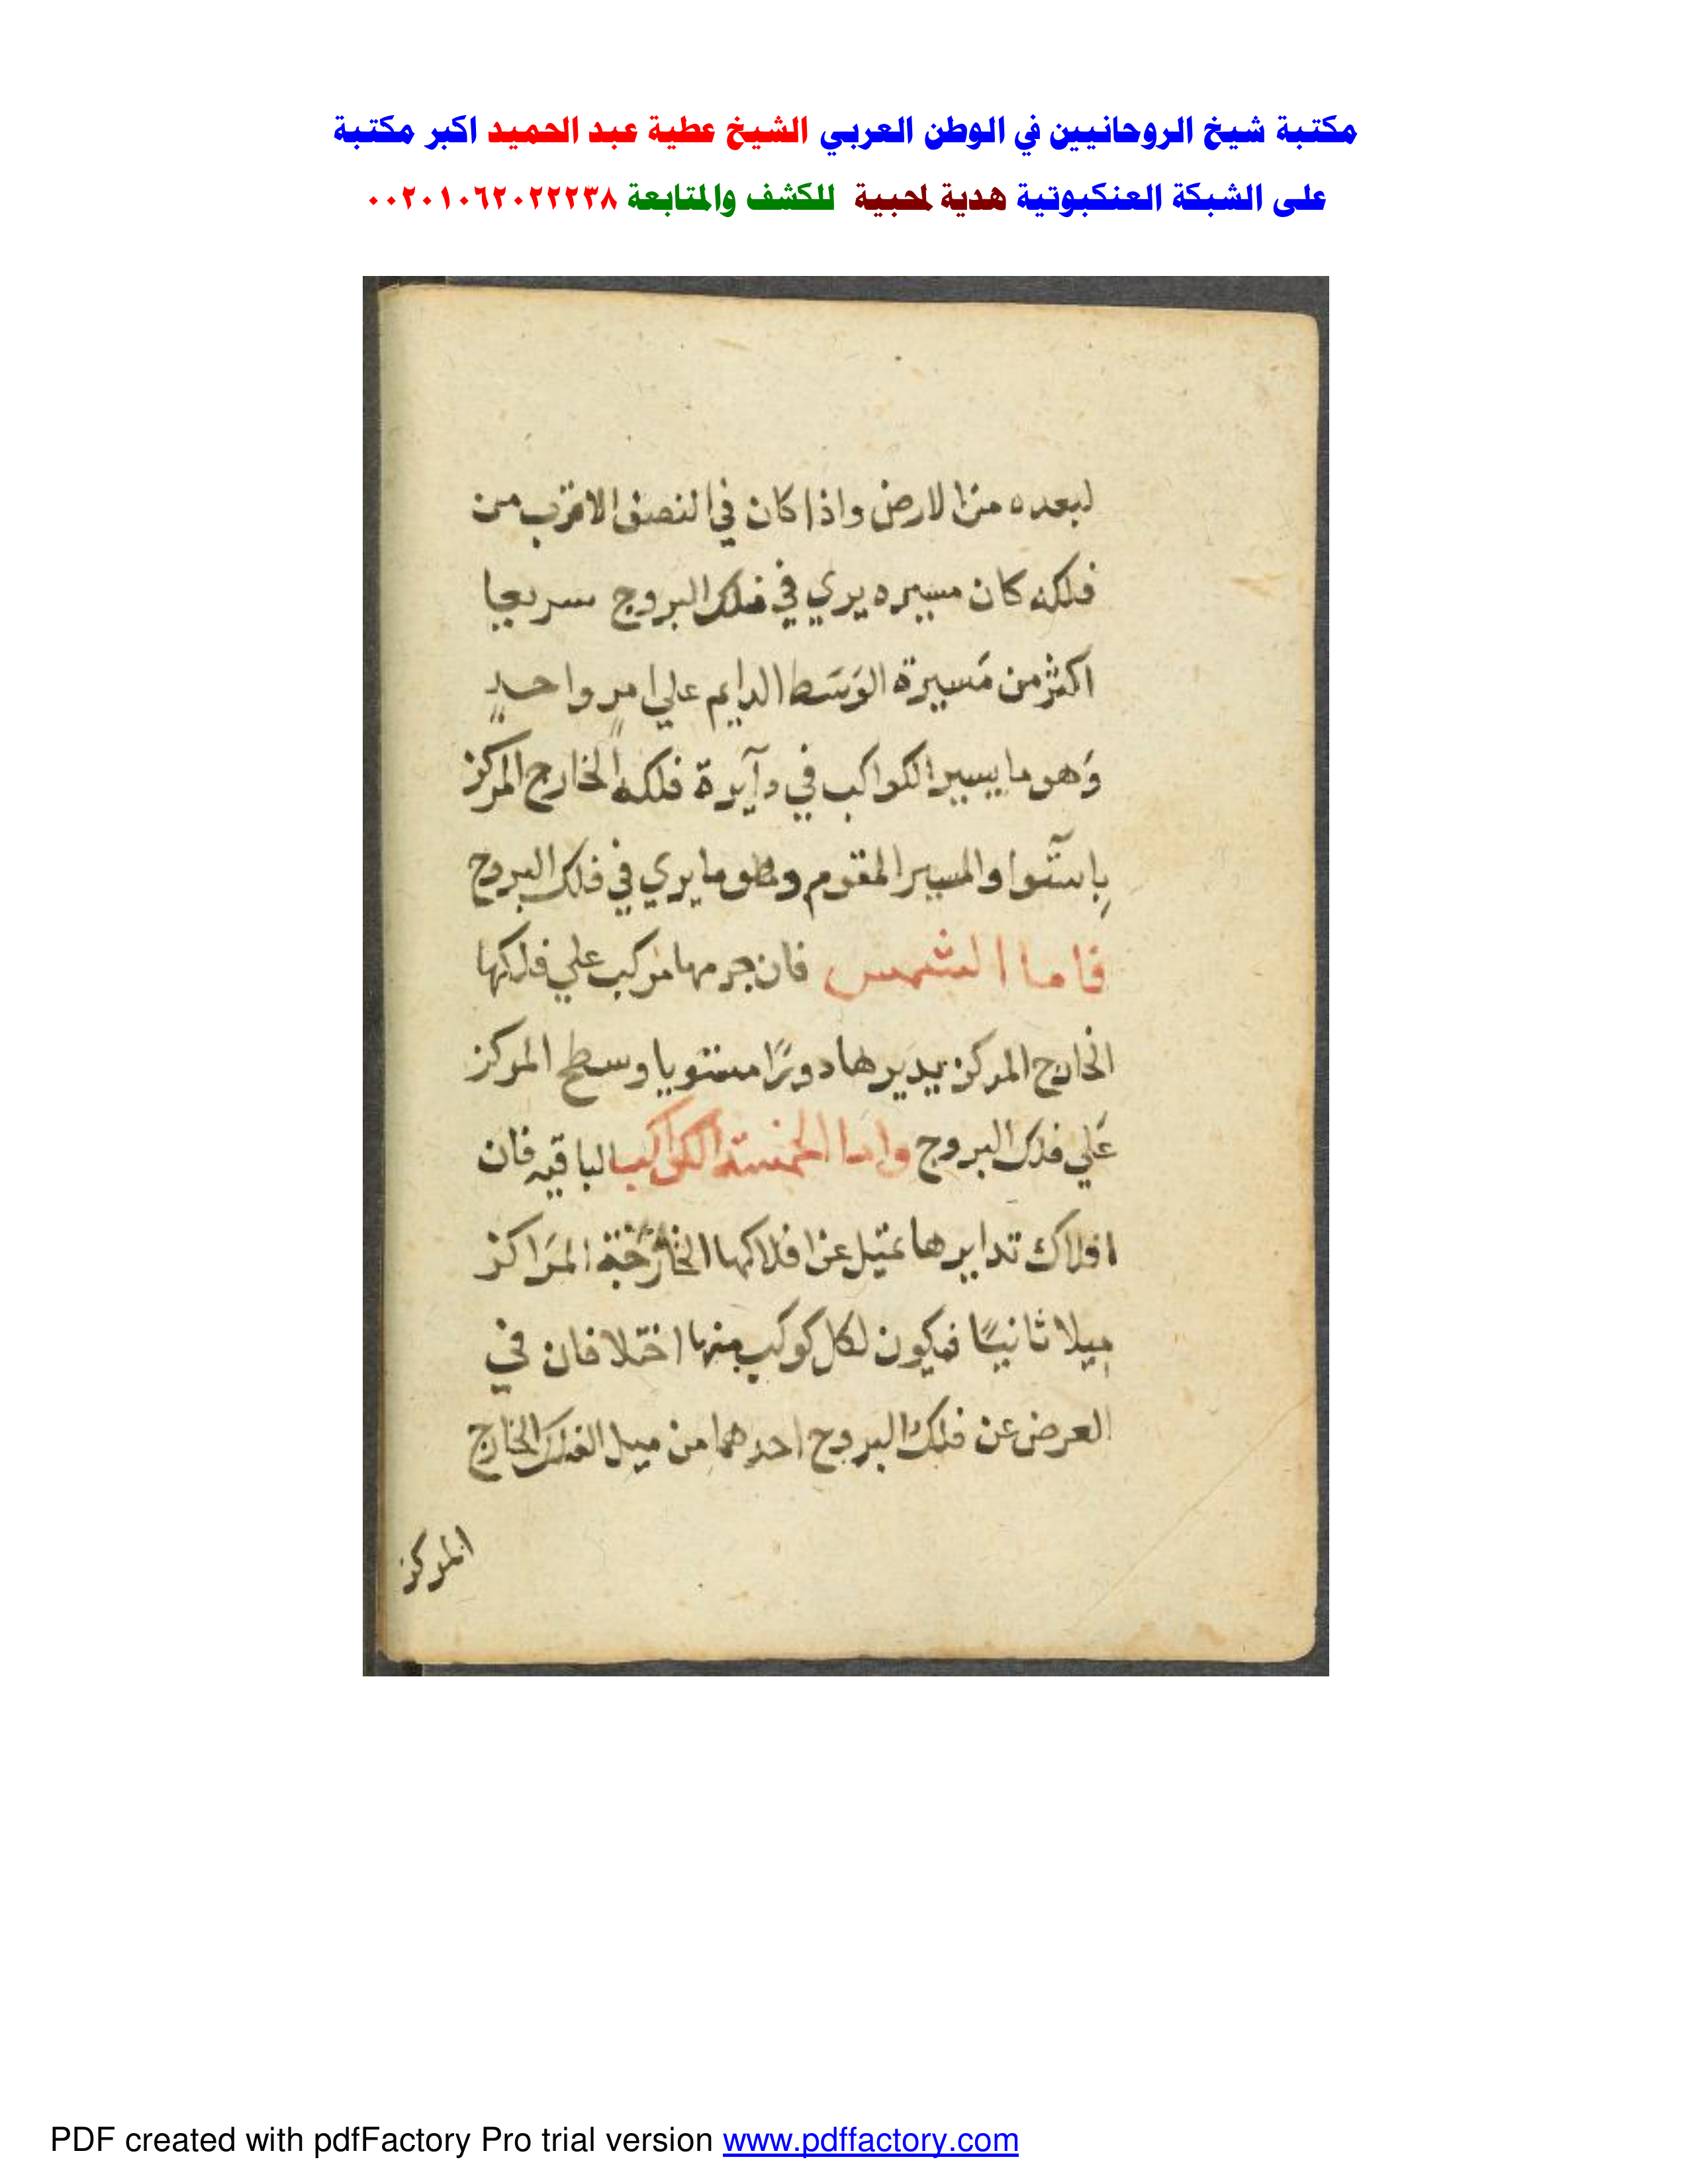 مكتبة شيخ الروحانيين في الوطن العربي الشيخ عطية عبد الحميد اكبر مكتبة
على الشبكة العنكبوتية هدية لمحبية للكشف والمتابعة ٠٠٢٠١٠٦٢٠٢٢٢٣٨
لبعده من الارض واذا كان في النصف الاقرب من
فلكه كان مسيره يري في فلك البروج سريعا
اكثر من مَسيرة الوَسَط الدايم علي امرٍ واحدٍ
وَهو ما يسير الكواكب في دآيرة فلكه الخارج المركز
بِاستَوا والمسير المقوم وهو ما يري في فلك البروج
فاما الشمس فان جرمها مركب علي فلكها
الخارج المركز يديرها دورًا مستويا وسطح المركز
عَلي فلك البروج واما الخمسة الكواكب الباقيه فان
افلاك تدايرها تميل عن افلاكها الخارجة المَراكز
ميلا ثانيًا فيكون لكل كوكب منها اختلافان في
العرض عن فلك البروج احدهما من ميل الفلك الخارج
المركز
PDF created with pdfFactory Pro trial version www.pdffactory.com